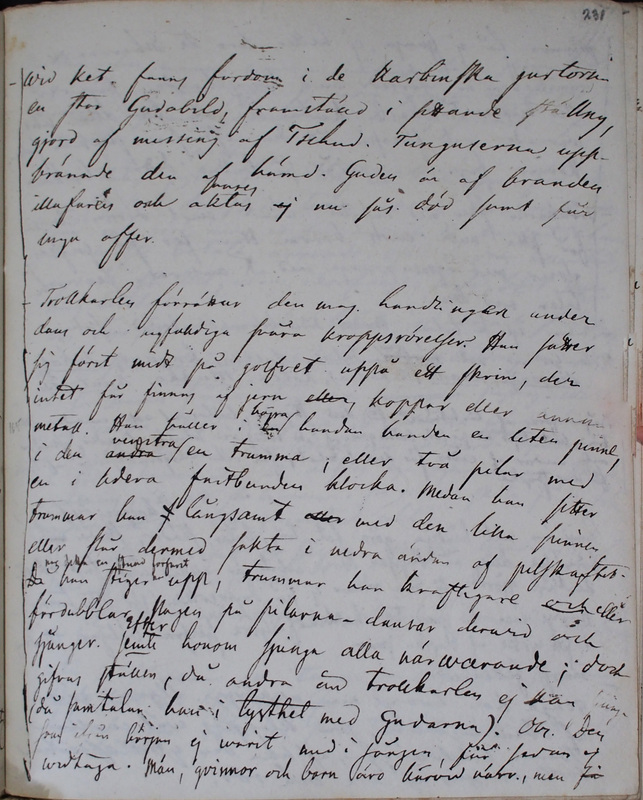 231
wid Ket. fanns fordom i de Karbinska jurtorna
en stor Gudabild, framställd i sittande ställng,
gjord af messing af Tschud. Tunguserna upp-
brände den af hämd. Guden är af branden
illa faren och aktas anses ej nu sås. död samt får
inga offer.
- Trollkarlen förrättar den mag. handlingen under
dans och ugfuldiga svåra kroppsrörelser. Han sätter
sig först midt på golfvet uppå ett skrin, der
intet får finnas af jern eller, koppar eller annan
metall. Han håller i en högra handen en liten pinne,
i den andra venstra en trumma; eller två pilar med
en i hvardera fastbunden klocka. Medan han sitter
trummar han långsamt eller med den lilla pinnen
eller slår dermed sakta i nedra ändan af pilskaftet.
Då han stiger upp, trummar han kraftigare och eller
fördubblar slagen på pilarna - dansar dervid och
sjunger. Efter honom sjunga alla närwarande; dock
gifvas ställen, då andra än trollkarlen ej
(då samtalar han i tysthet med Gudarna). Obs. Den
som i början ej warit med i sången, får sedan ej
widtaga. Män, qvinnor och barn äro härvid närv., men